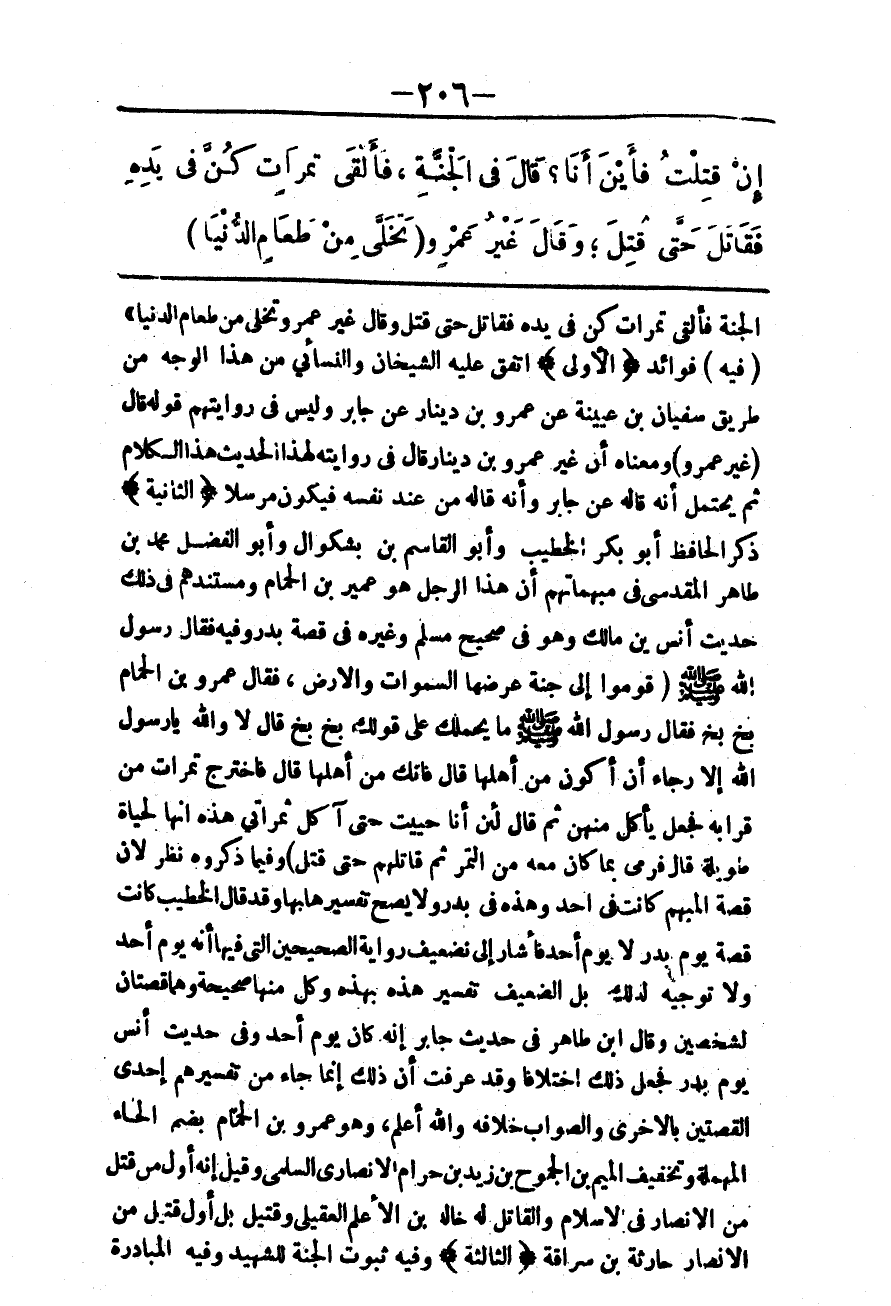 —٢٠٦—
إِنْ قُتِلْتُ فَأَيْنَ أَنَا؟ قَالَ فى الْجَنَّةِ ، فَأَلْقَى تَمَرَاتٍ كُنَّ فى يَدِهِ
فَقَاتَلَ حَتَّى قُتِلَ ؛ وَقَالَ غَيْرُ عَمْرٍو ( تَخَلَّى مِنْ طَعَامِ الدُّنْيَا )
الجنة فألقى تمرات كن فى يده فقاتل حتى قتل وقال غير عمرو تخلى من طعام الدنيا»
( فيه ) فوائد ﴿ الأولى ﴾ اتفق عليه الشيخان والنسائي من هذا الوجه من
طريق سفيان بن عيينة عن عمرو بن دينار عن جابر وليس فى روايتهم قوله قال
(غير عمرو) ومعناه أن غير عمرو بن دينار قال فى روايته لهذا الحديث هذا الكلام
ثم يحتمل أنه قاله عن جابر وأنه قاله من عند نفسه فيكون مرسلا ﴿ الثانية ﴾
ذكر الحافظ أبو بكر الخطيب وأبو القاسم بن بشكوال وأبو الفضل محمد بن
طاهر المقدسى فى مبهماتهم أن هذا الرجل هو عمير بن الحمام ومستندهم فى ذلك
حديث أنس بن مالك وهو فى صحيح مسلم وغيره فى قصة بدر وفيه فقال رسول
الله ﷺ ( قوموا إلى جنة عرضها السموات والارض ، فقال عمرو بن الحمام
بخ بخ فقال رسول الله ﷺ ما يحملك على قولك بخ بخ قال لا والله يارسول
الله إلا رجاء أن أكون من أهلها قال فانك من أهلها قال فاخترج تمرات من
قرابه فجعل يأكل منهن ثم قال لئن أنا حييت حتى آكل تمراتي هذه انها لحياة
طويلة قال فرمى بما كان معه من التمر ثم قاتلهم حتى قتل) وفيما ذكروه نظر لان
قصة المبهم كانت فى احد وهذه فى بدر ولا يصح تفسيرها بها وقد قال الخطيب كانت
قصة يوم بدر لا يوم أحد فأشار إلى تضعيف رواية الصحيحين التى فيها أنه يوم أحد
ولا توجيه لذلك بل الضعيف تفسير هذه بهذه وكل منها صحيحة وهما قصتان
لشخصين وقال ابن طاهر فى حديث جابر إنه كان يوم أحد وفى حديث أنس
يوم بدر فجعل ذلك اختلافا وقد عرفت أن ذلك إنما جاء من تفسيرهم إحدى
القصتين بالاخرى والصواب خلافه والله أعلم ، وهو عمرو بن الحمام بضم الحاء
المهملة وتخفيف الميم بن الجموح بن زيد بن حرام الانصارى السلمى وقيل إنه أول من قتل
من الانصار فى الاسلام والقاتل له خالد بن الأعلم العقيلى وقتيل بل أول قتيل من
الانصار حارثة بن سراقة ﴿ الثالثة ﴾ وفيه ثبوت الجنة للشهيد وفيه المبادرة